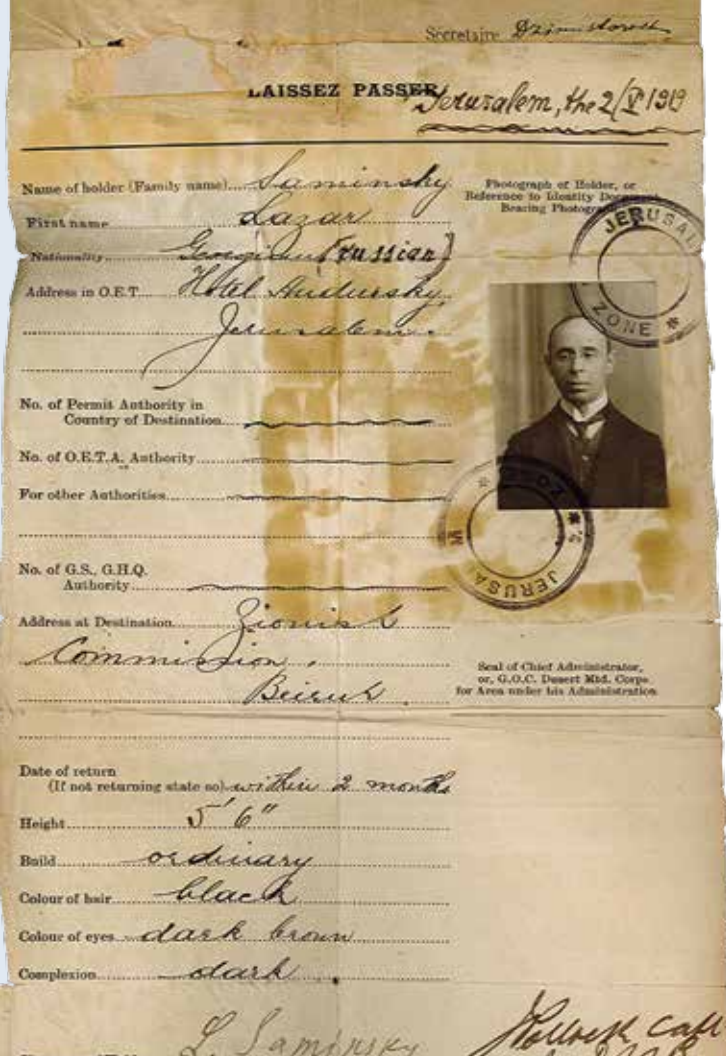 Secretaire
LAISSEZ PASSER
Jerusalem, the 2/V 1919
Name of holder (Family name) Saminsky
First name Lazar
Nationality Georgian (russian)
Address in O.E.T. Hotel
Jerusalem.
No. of Permit Authority in
Country of Destination
No. of O.E.T.A. Authority
For other Authorities
No. of G.S., G.H.Q.
Authority
Address at Destination Zionist
Commission,
Beirut.
Date of return
(If not returning state so) within 2 months
Height 5' 6"
Build ordinary
Colour of hair black
Colour of eyes dark brown
Complexion dark
L Saminsky
Photograph of Holder, or
Reference to Identity Document
Bearing Photograph
JERUSAL
ZONE *
* ZONE *
JERUSA M
Seal of Chief Administrator,
or, G.O.C. Desert Mtd. Corps
for Area under his Administration
Capt